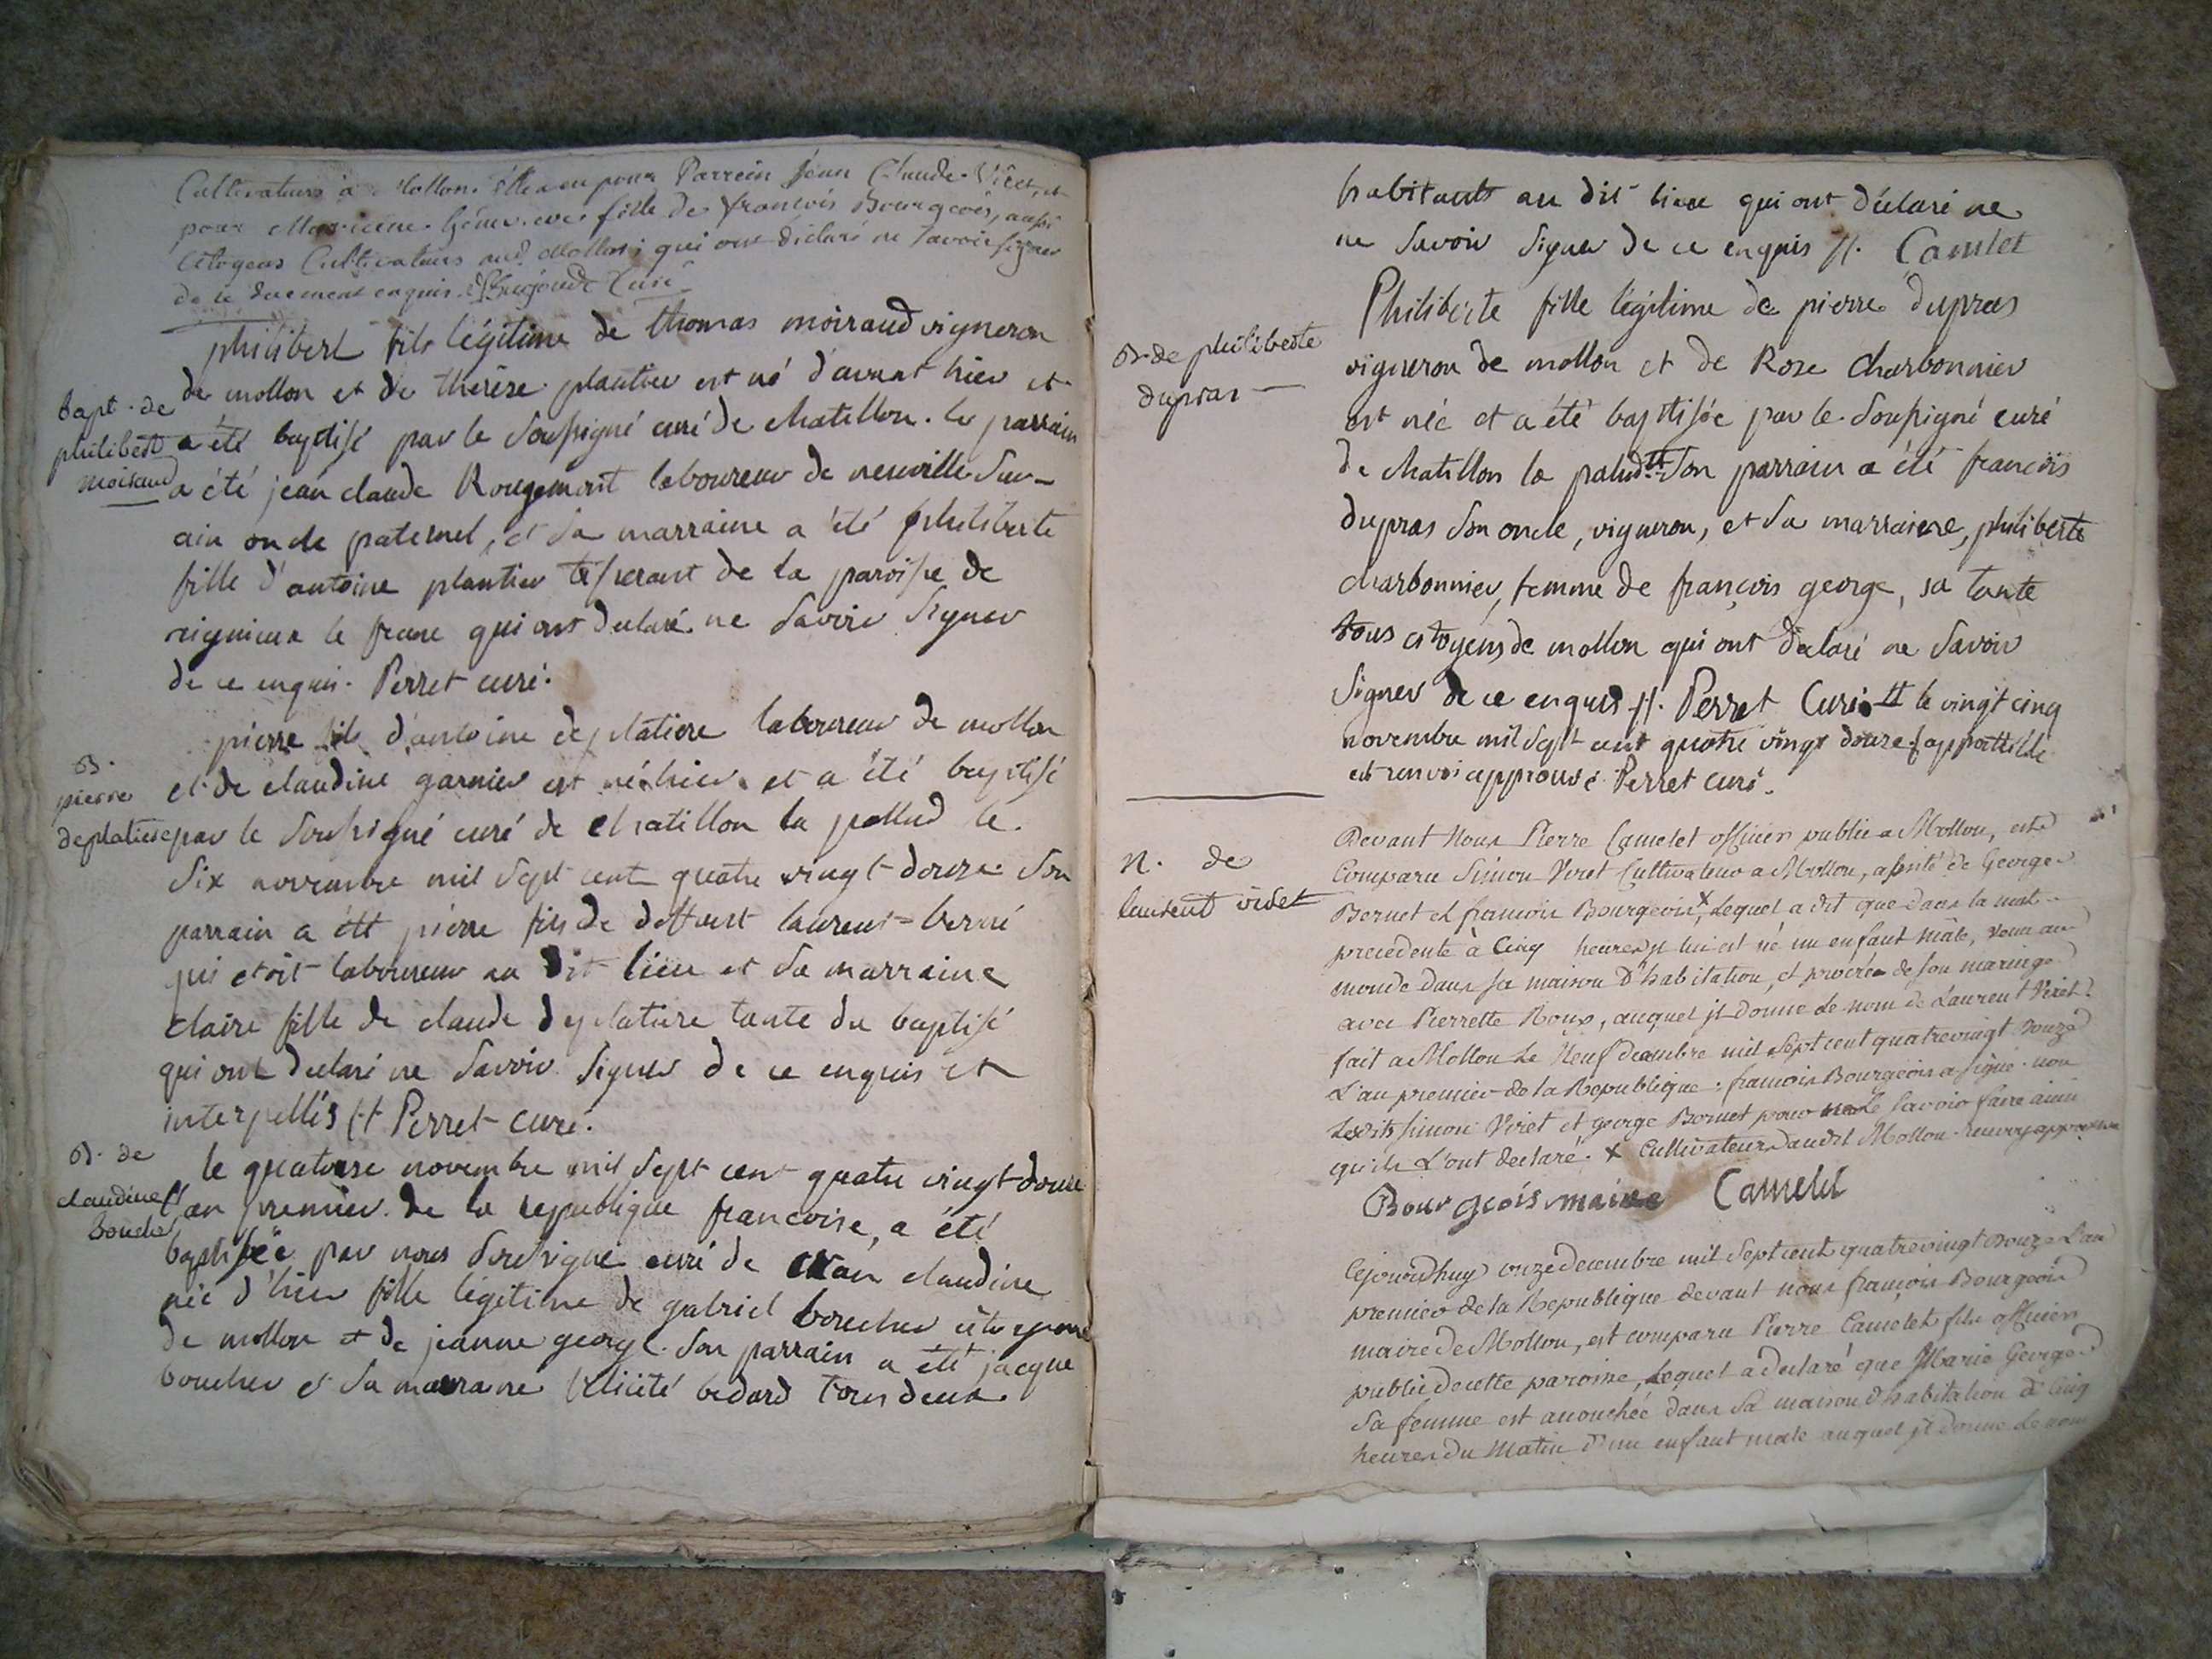 Cultivateurs à Mollon. Elle a eu pour Parrein Jean Claude Viret, et
pour Marreine fille de françois Bourgeois, aussi
Citoyens Cultivateurs aud. Mollon; qui ont déclaré ne savoir signer
de ce duement enquis. Curé
philibert fils légitime de thomas moiraud vigneron
de mollon et de therèse plantier est né d'avant hier et
bapt. de
philibert
moiraud
a été baptisé par le soussigné curé de chatillon. le parrain
a été jean claude Rougemont laboureur de neuville sur-
ain oncle paternel, et sa marraine a été philiberte
fille d'antoine plantier tisserant de la paroisse de
rignieux le franc qui ont declaré ne savoir signer
de ce enquis. Perret curé.
pierre fils d'antoine deplatiere laboureur de mollon
B.
pierre
deplatiere
et de claudine garnier est né hier et a été baptisé
par le soussigné curé de chatillon la pallud le
six novembre mil sept cent quatre vingt-douze son
parrain a été pierre fils de deffunt laurent
qui etoit laboureur au dit lieu et sa marraine
claire fille de claude deplatiere tante du baptisé
qui ont declaré ne savoir signer de ce enquis et
interpellés Perret curé.
B. de
claudine
boucher
le quatorse novembre mil sept cent quatre vingt-douse
l'an premier de la republique francoise, a été
baptisée par nous soussigné curé de claudine
née d'hier fille légitime de gabriel boucher
de mollon et de jeanne george. son parrain a été jacque
boucher et sa marraine félicité bedard tous deux
habitants au dit lieu qui ont déclaré ne
ne savoir signer de ce enquis Camelet
B. de philiberte
dupras
Philiberte fille légitime de pierre dupras
vigneron de mollon et de Rose charbonnier
est née et a été baptisée par le soussigné curé
de chatillon la palud son parrain a été francois
dupras son oncle, vigneron, et sa marraine, philiberte
charbonnier, femme de françois george, sa tante
tous citoyens de mollon qui ont déclaré ne savoir
signer de ce enquis Perret Curé le vingt cinq
novembre mil sept cent quatre vingt douze
renvoi approuvé Perret curé.
N. de
laurent viret
Devant Nous Pierre Camelet officier public a Mollon, est
Comparu Simon Viret Cultivateur a Mollon, assisté de George
Bernet et francois Bourgeois x, Lequel a dit que dans la nuit
precedente à Cinq heures jl lui est né un enfant mâle, venu au
monde dans sa maison D'habitation, et procréé de son mariage
avec Pierrette Roux, auquel jl donne Le nom de Laurent Viret.
fait a Mollon Le Neuf decembre mil sept cent quatrevingt Douze
L'an premier de la Republique. francois Bourgeois a signé non
Lesdits Simon Viret et george Bernet pour ne Le savoir faire ainsi
qu'ils L'ont declaré. x Cultivateurs audit Mollon renvoy approuvé
Bourgeois maire Camelet
Cejourdhuy onze decembre mil sept cent quatrevingt Douze L'an
premier de la Republique devant nous francois Bourgeois
maire de Mollon, est comparu Pierre Camelet fils officier
public de cette paroisse, Lequel a declaré que Marie George
sa femme est acouchée dans sa maison d'habitation à Cinq
heures du Matin d'un enfant mâle auquel jl donne Le nom